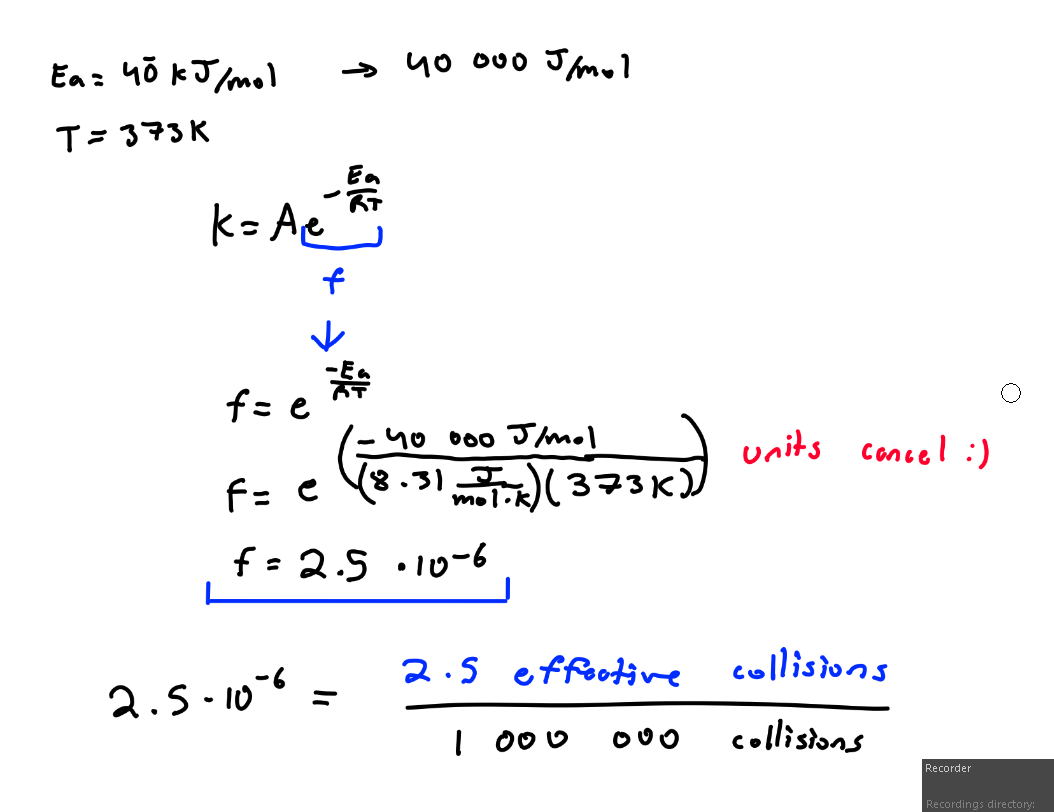 Ea = 40̄ kJ/mol → 40 000 J/mol
T = 373K
k = Ae^(-Ea/RT)
f
↓
f = e^(-Ea/RT)
f = e^(-40 000 J/mol / (8.31 J/mol·K)(373K)) units cancel :)
f = 2.5 · 10^-6
2.5 · 10^-6 = 2.5 effective collisions / 1 000 000 collisions
Recorder
Recordings directory: